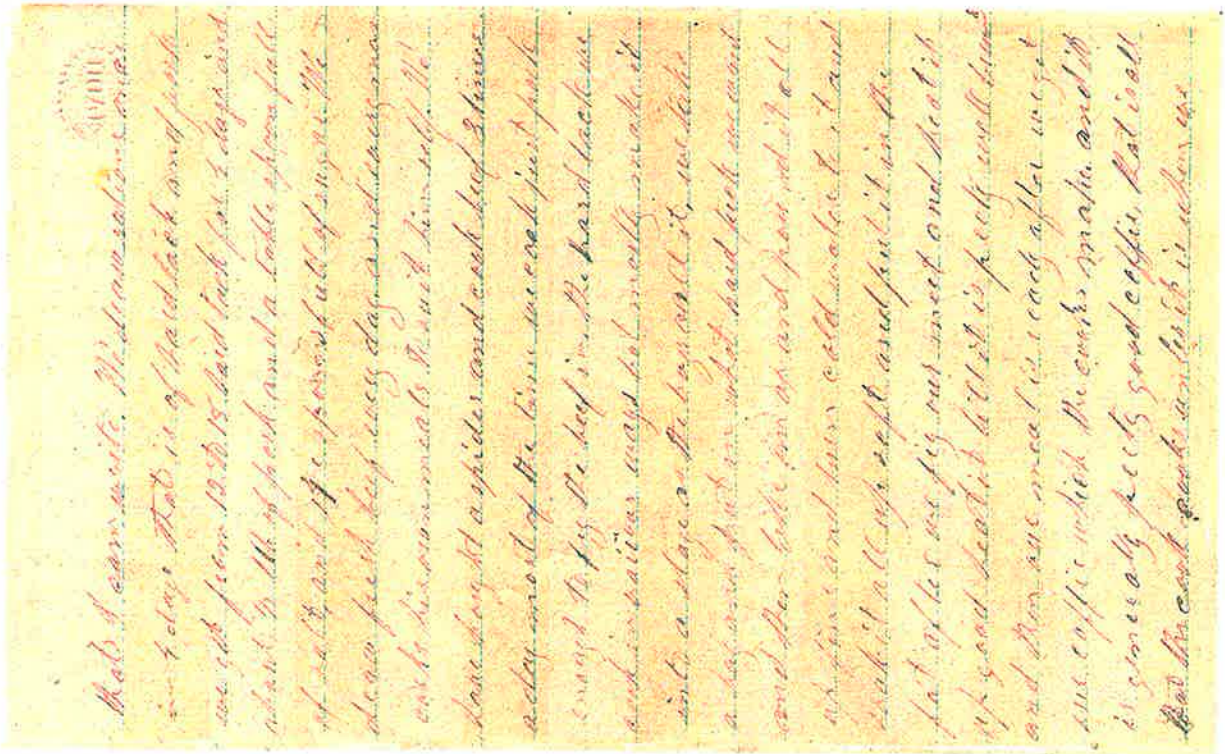 that I can write. We draw rations once
in 3 days that is of hard tack and pork
we get from 12 to 15 hard tack for 3 days and
about ¾ lb of pork and a table spoon full
of salt and spoons full of sugar the
draw fresh beef every day and every one
cooks his own meals to suit himself. We
have bought a spider and cook beef 3 times
a day most of the time we cook just pork
enough to fry the beef in the hard tack we
and in various ways but mostly make it
into a the way we do it, we take
a bag and put in what hard tack we want
and then take an ax and pound it all
up fine and turn cold water to it and
soak it all up soft and put it in the
fat after we fry our meat and heat it
up good heat it till it is pretty well done
and then our meal is ready after we get
our coffee which the cooks make and it
is generally pretty good coffee, that is all
that the cook cooks unless it is when we